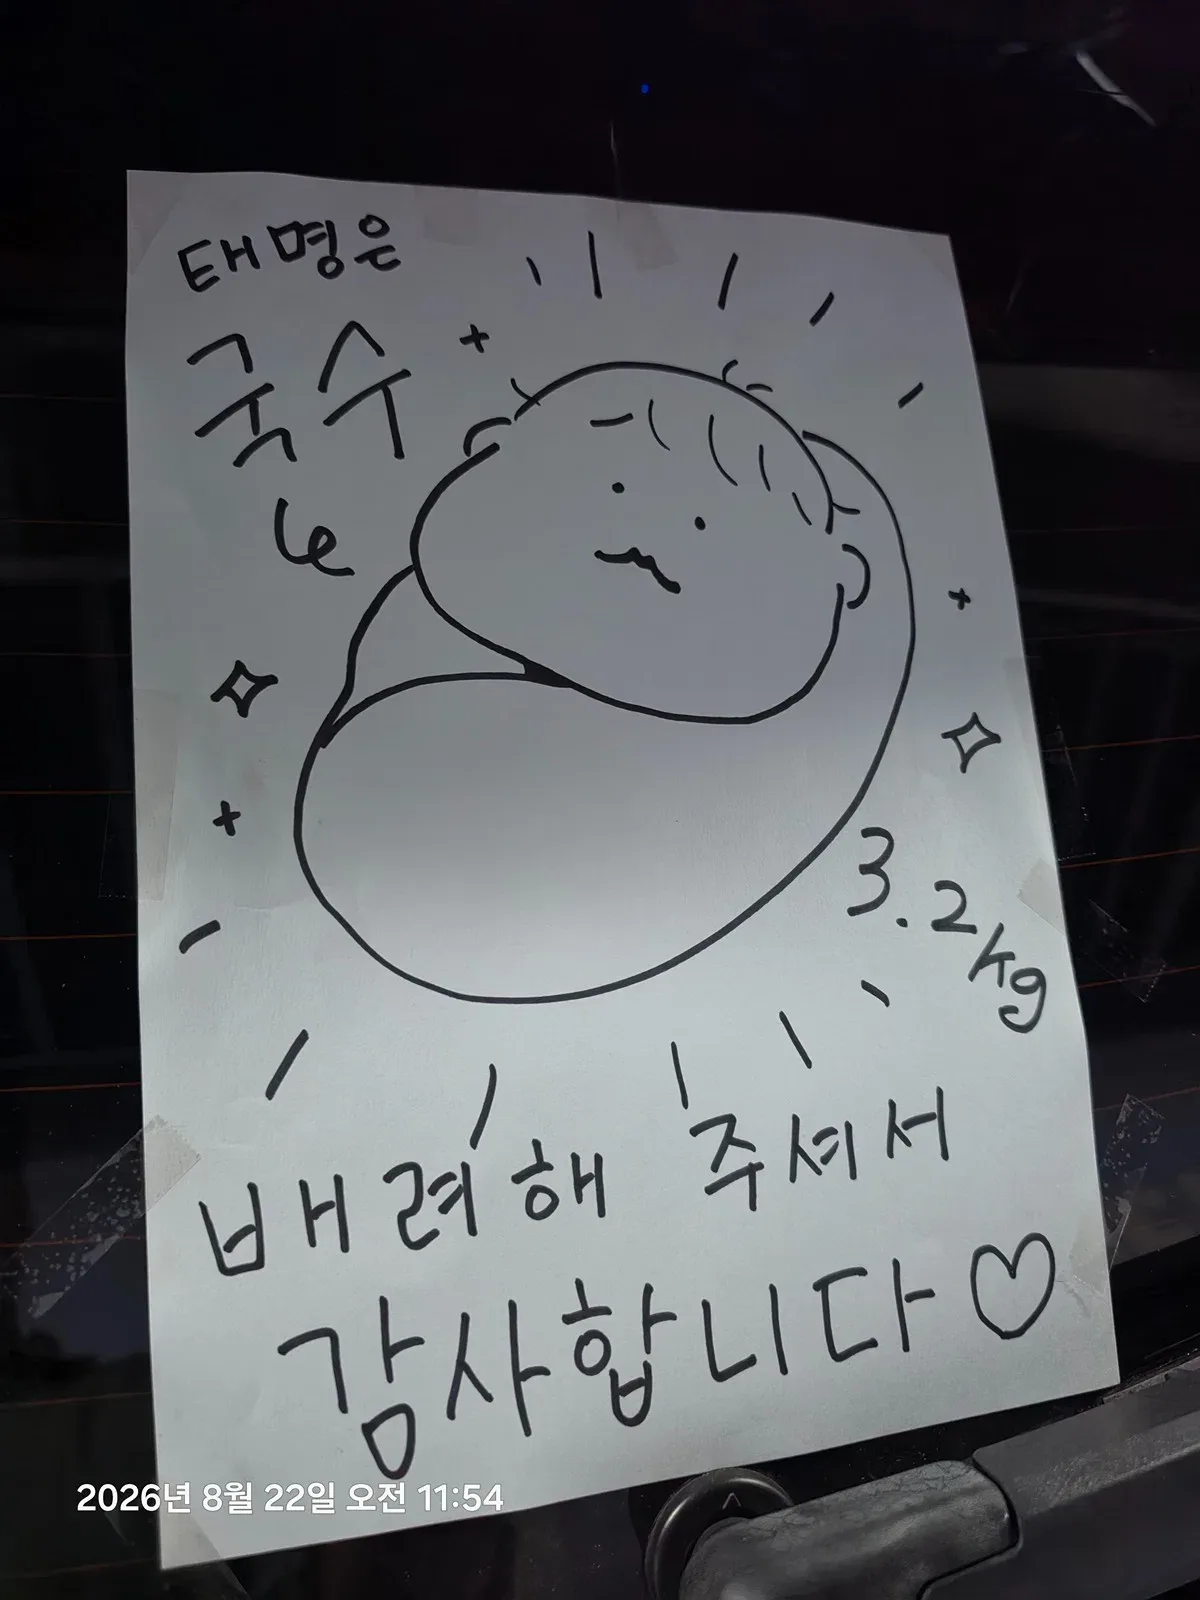 태명은
국수
3.2kg
배려해 주셔서
감사합니다♡
2026년 8월 22일 오전 11:54